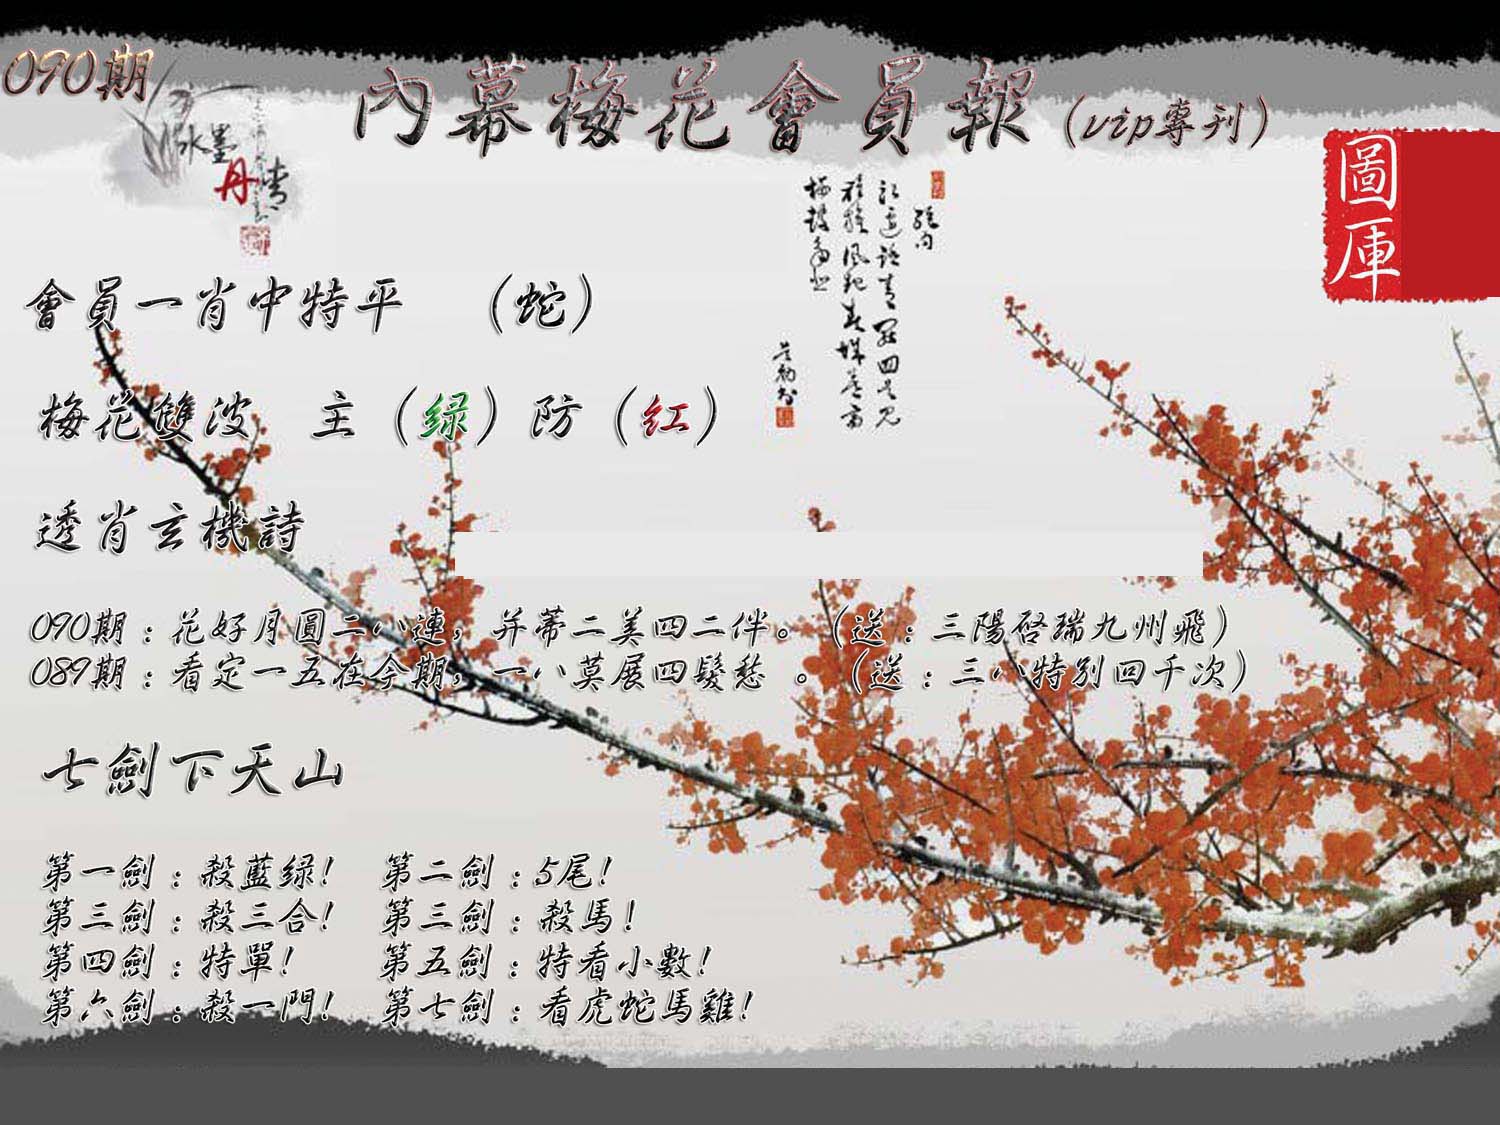 090期
內幕梅花會員報(vip專刊)
水墨
丹青
圖庫
會員一肖中特平 (蛇)
梅花雙波 主(绿)防(红)
透肖玄機詩
090期:花好月圓二八連,并蒂二美四二伴。(送:三陽啓瑞九州飛)
089期:看定一五在今期,一八莫展四鬢愁 。(送:三八特別四千次)
七劍下天山
第一劍:殺藍绿! 第二劍:5尾!
第三劍:殺三合! 第三劍:殺馬!
第四劍:特單! 第五劍:特看小數!
第六劍:殺一門! 第七劍:看虎蛇馬雞!